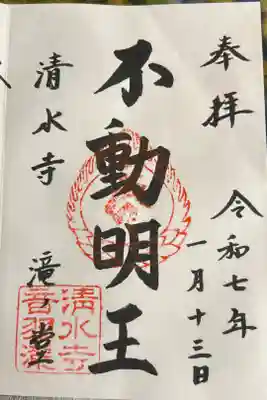 奉拝
令和七年
一月十三日
不動明王
清水寺
滝の堂
清水寺
音羽瀧